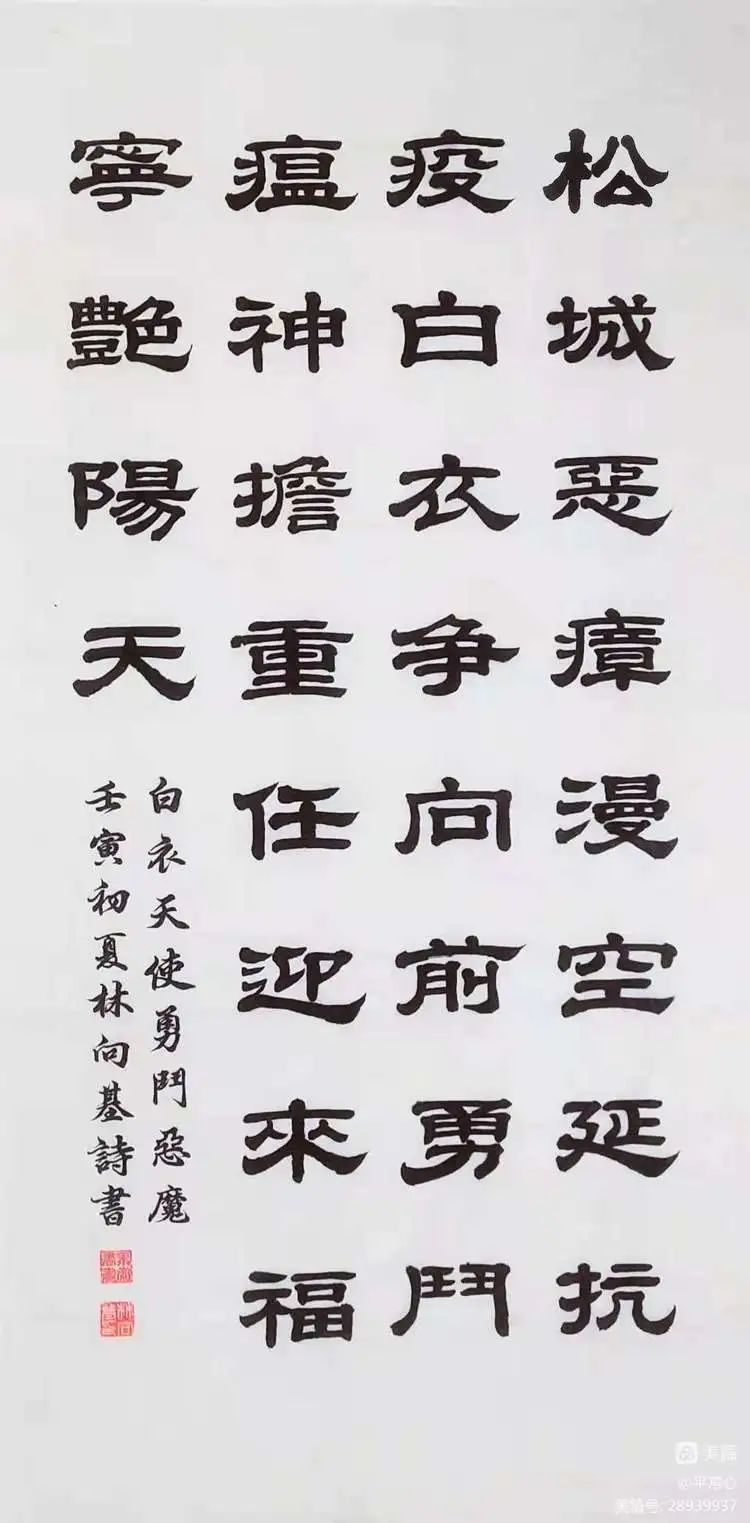 松城惡瘴漫空延抗
疫白衣争向前勇鬥
瘟神擔重任迎來福
寧艷陽天
白衣天使勇鬥惡魔
壬寅初夏林向基詩書
美篇
美篇号: 28939937